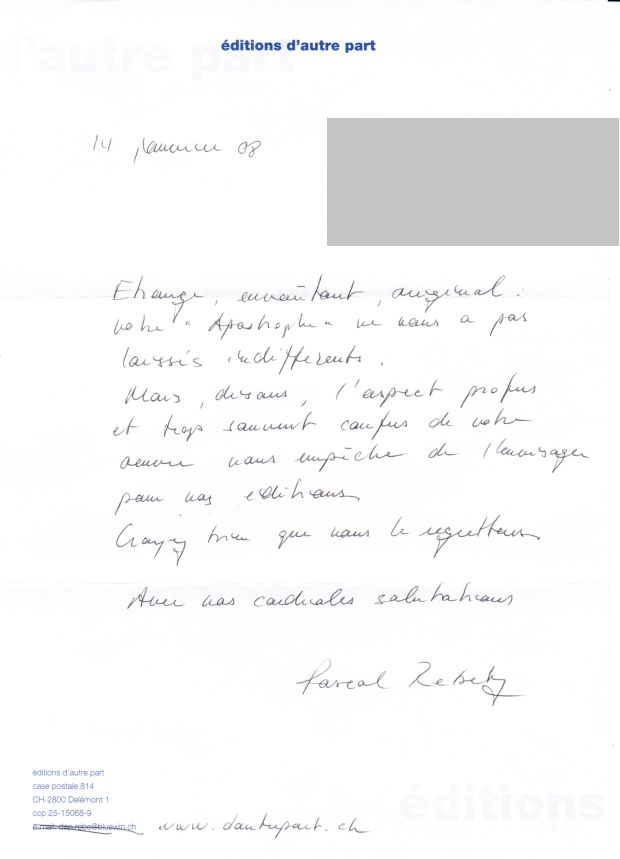 d'autre part
éditions d'autre part
14 janvier 08
Etrange, envoûtant, original :
votre "Apostrophe" ne nous a pas
laissés indifférents.
Mais, disons, l'aspect profus
et trop souvent confus de votre
oeuvre nous empêche de l'envisager
pour nos éditions
Croyez bien que nous le regrettons
Avec nos cordiales salutations
Pascal Rebetez
éditions d'autre part
case postale 814
CH-2800 Delémont 1
ccp 25-15068-9
e-mail: dep.rebe@bluewin.ch www.dautrepart.ch
éditions